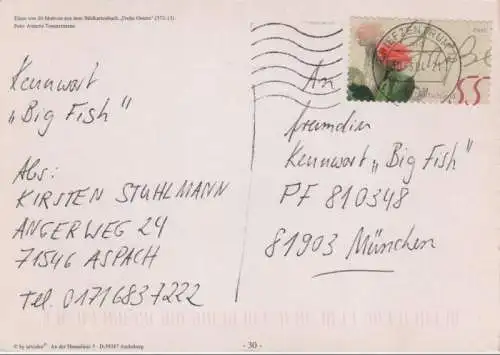 Eines von 30 Motiven aus dem Bildkartenbuch „Frohe Ostern“ (373-13)
Foto: Annette Timmermann
Kennwort
„Big Fish“
Abs:
KIRSTEN STUHLMANN
ANGERWEG 24
71546 ASPACH
Tel. 01716837222
BRIEFZENTRUM
55
An
freundin
Kennwort „Big Fish“
PF 810348
81903 München
© by artvideo An der Hansalinie 5 · D-59387 Ascheberg
- 30 -